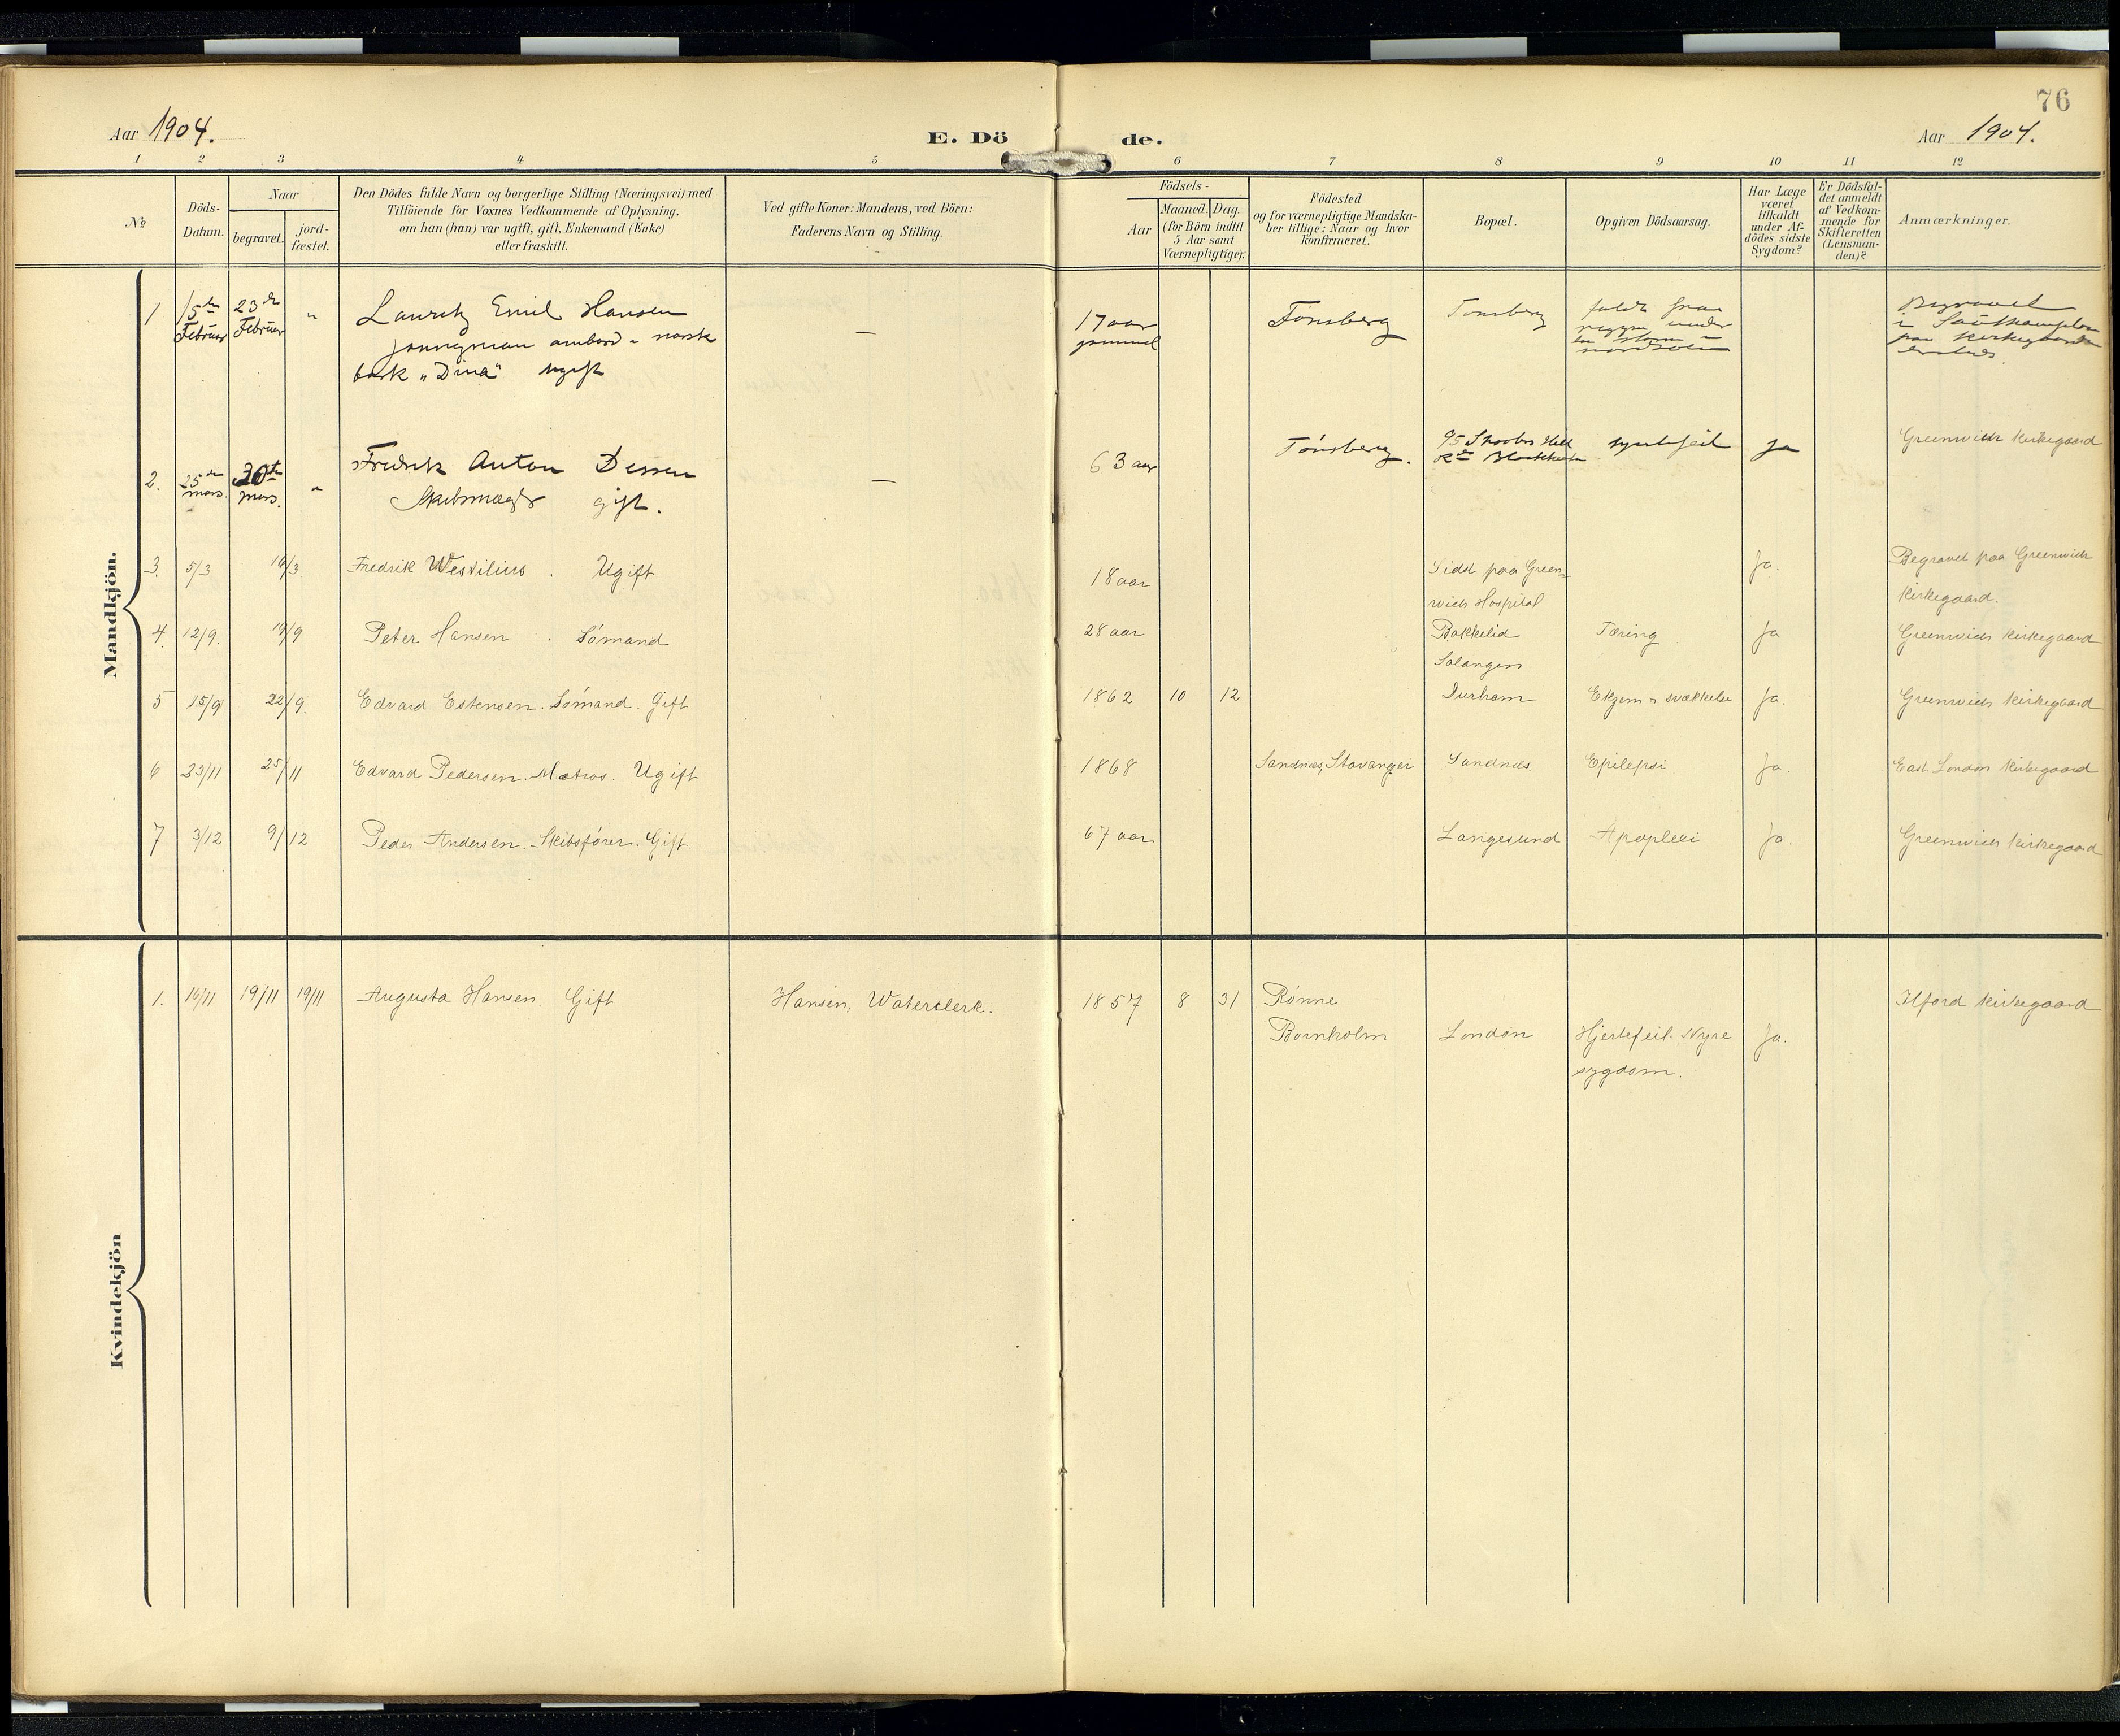 76
Aar 1904.
E. Dö de.
Aar 1904.
1 2 3 4 5 6 7 8 9 10 11 12
No
Döds-
Datum.
Naar
begravet.
jord-
fæstet.
Den Dödes fulde Navn og borgerlige Stilling (Næringsvei) med
Tilföiende for Voxnes Vedkommende af Oplysning,
om han (hun) var ugift, gift, Enkemand (Enke)
eller fraskilt.
Ved gifte Koner: Mandens, ved Börn:
Faderens Navn og Stilling.
Födsels-
Aar
Maaned. Dag.
(for Börn indtil
5 Aar samt
Værnepligtige).
Födested
og for værnepligtige Mandska-
ber tillige: Naar og hvor
konfirmeret.
Bopæl.
Opgiven Dödsaarsag.
Har Læge
været
tilkaldt
under Af-
dödes sidste
Sygdom?
Er Dödsfal-
det anmeldt
af Vedkom-
mende for
Skifteretten
(Lensman-
den)?
Anmærkninger.
Mandkjön.
1 15de Februar 23de Februar " Lauritz Emil Hansen — 17 aar Tönsberg Tönsberg faldt fra Begravet
jonngman ombord i norsk gammel
bark „Dina" ugift
2. 25de mars. 30te mars. " Fredrik Anton Dessen — 63 aar Tönsberg. 95 ja Greenwich Kirkegaard
Skibsmægler gift.
3. 5/3 10/3 Fredrik Wesvilius. Ugift 18 aar Sidst paa Green- Ja. Begravet paa Greenwich
wich Hospital Kirkegaard.
4. 12/9. 19/9 Peter Hansen. Sómand 28 aar Bakkelid Tæring Ja Greenwich Kirkegaard
Salangen
5 15/9 22/9. Edvard Estensen. Sómand. Gift 1862 10 12 Durham Ekzem & svækkelse Ja. Greenwich Kirkegaard
6 23/11 25/11 Edvard Pedersen. Matros. Ugift 1868 Sandnæs, Stavanger Sandnæs. Epilepsi Ja. East London Kirkegaard
7 3/12 9/12 Peder Andersen. Skibsfórer. Gift 67 aar Langesund Apoplexi Ja. Greenwich Kirkegaard
Kvindekjön
1. 16/11 19/11 19/11 Augusta Hansen. Gift Hansen: Waterclerk. 1857 8 31 Rónne Ilford Kirkegaard
Bornholm London Hjertefeil. Nyre Ja.
sygdom.